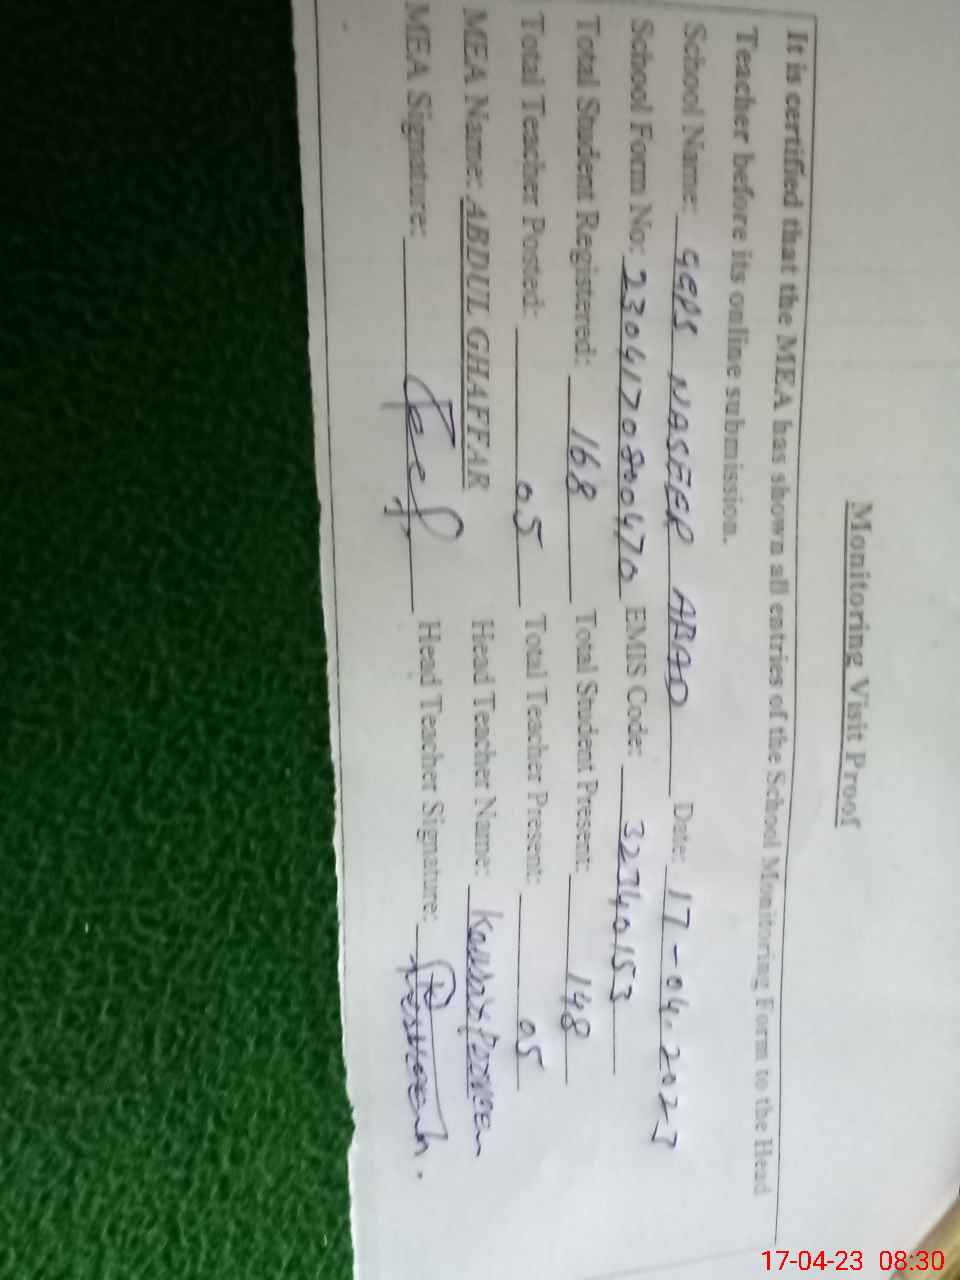 Monitoring Visit Proof
It is certified that the MEA has shown all entries of the School Monitoring Form to the Head
Teacher before its online submission.
School Name: GEPS NASEER ABAD Date: 17-04.2023
School Form No: 2304170800470 EMIS Code: 32740153
Total Student Registered: 168 Total Student Present: 148
Total Teacher Posted: 05 Total Teacher Present: 05
MEA Name: ABDUL GHAFFAR Head Teacher Name: Kousar Parveen
MEA Signature: Head Teacher Signature:
17-04-23 08:30